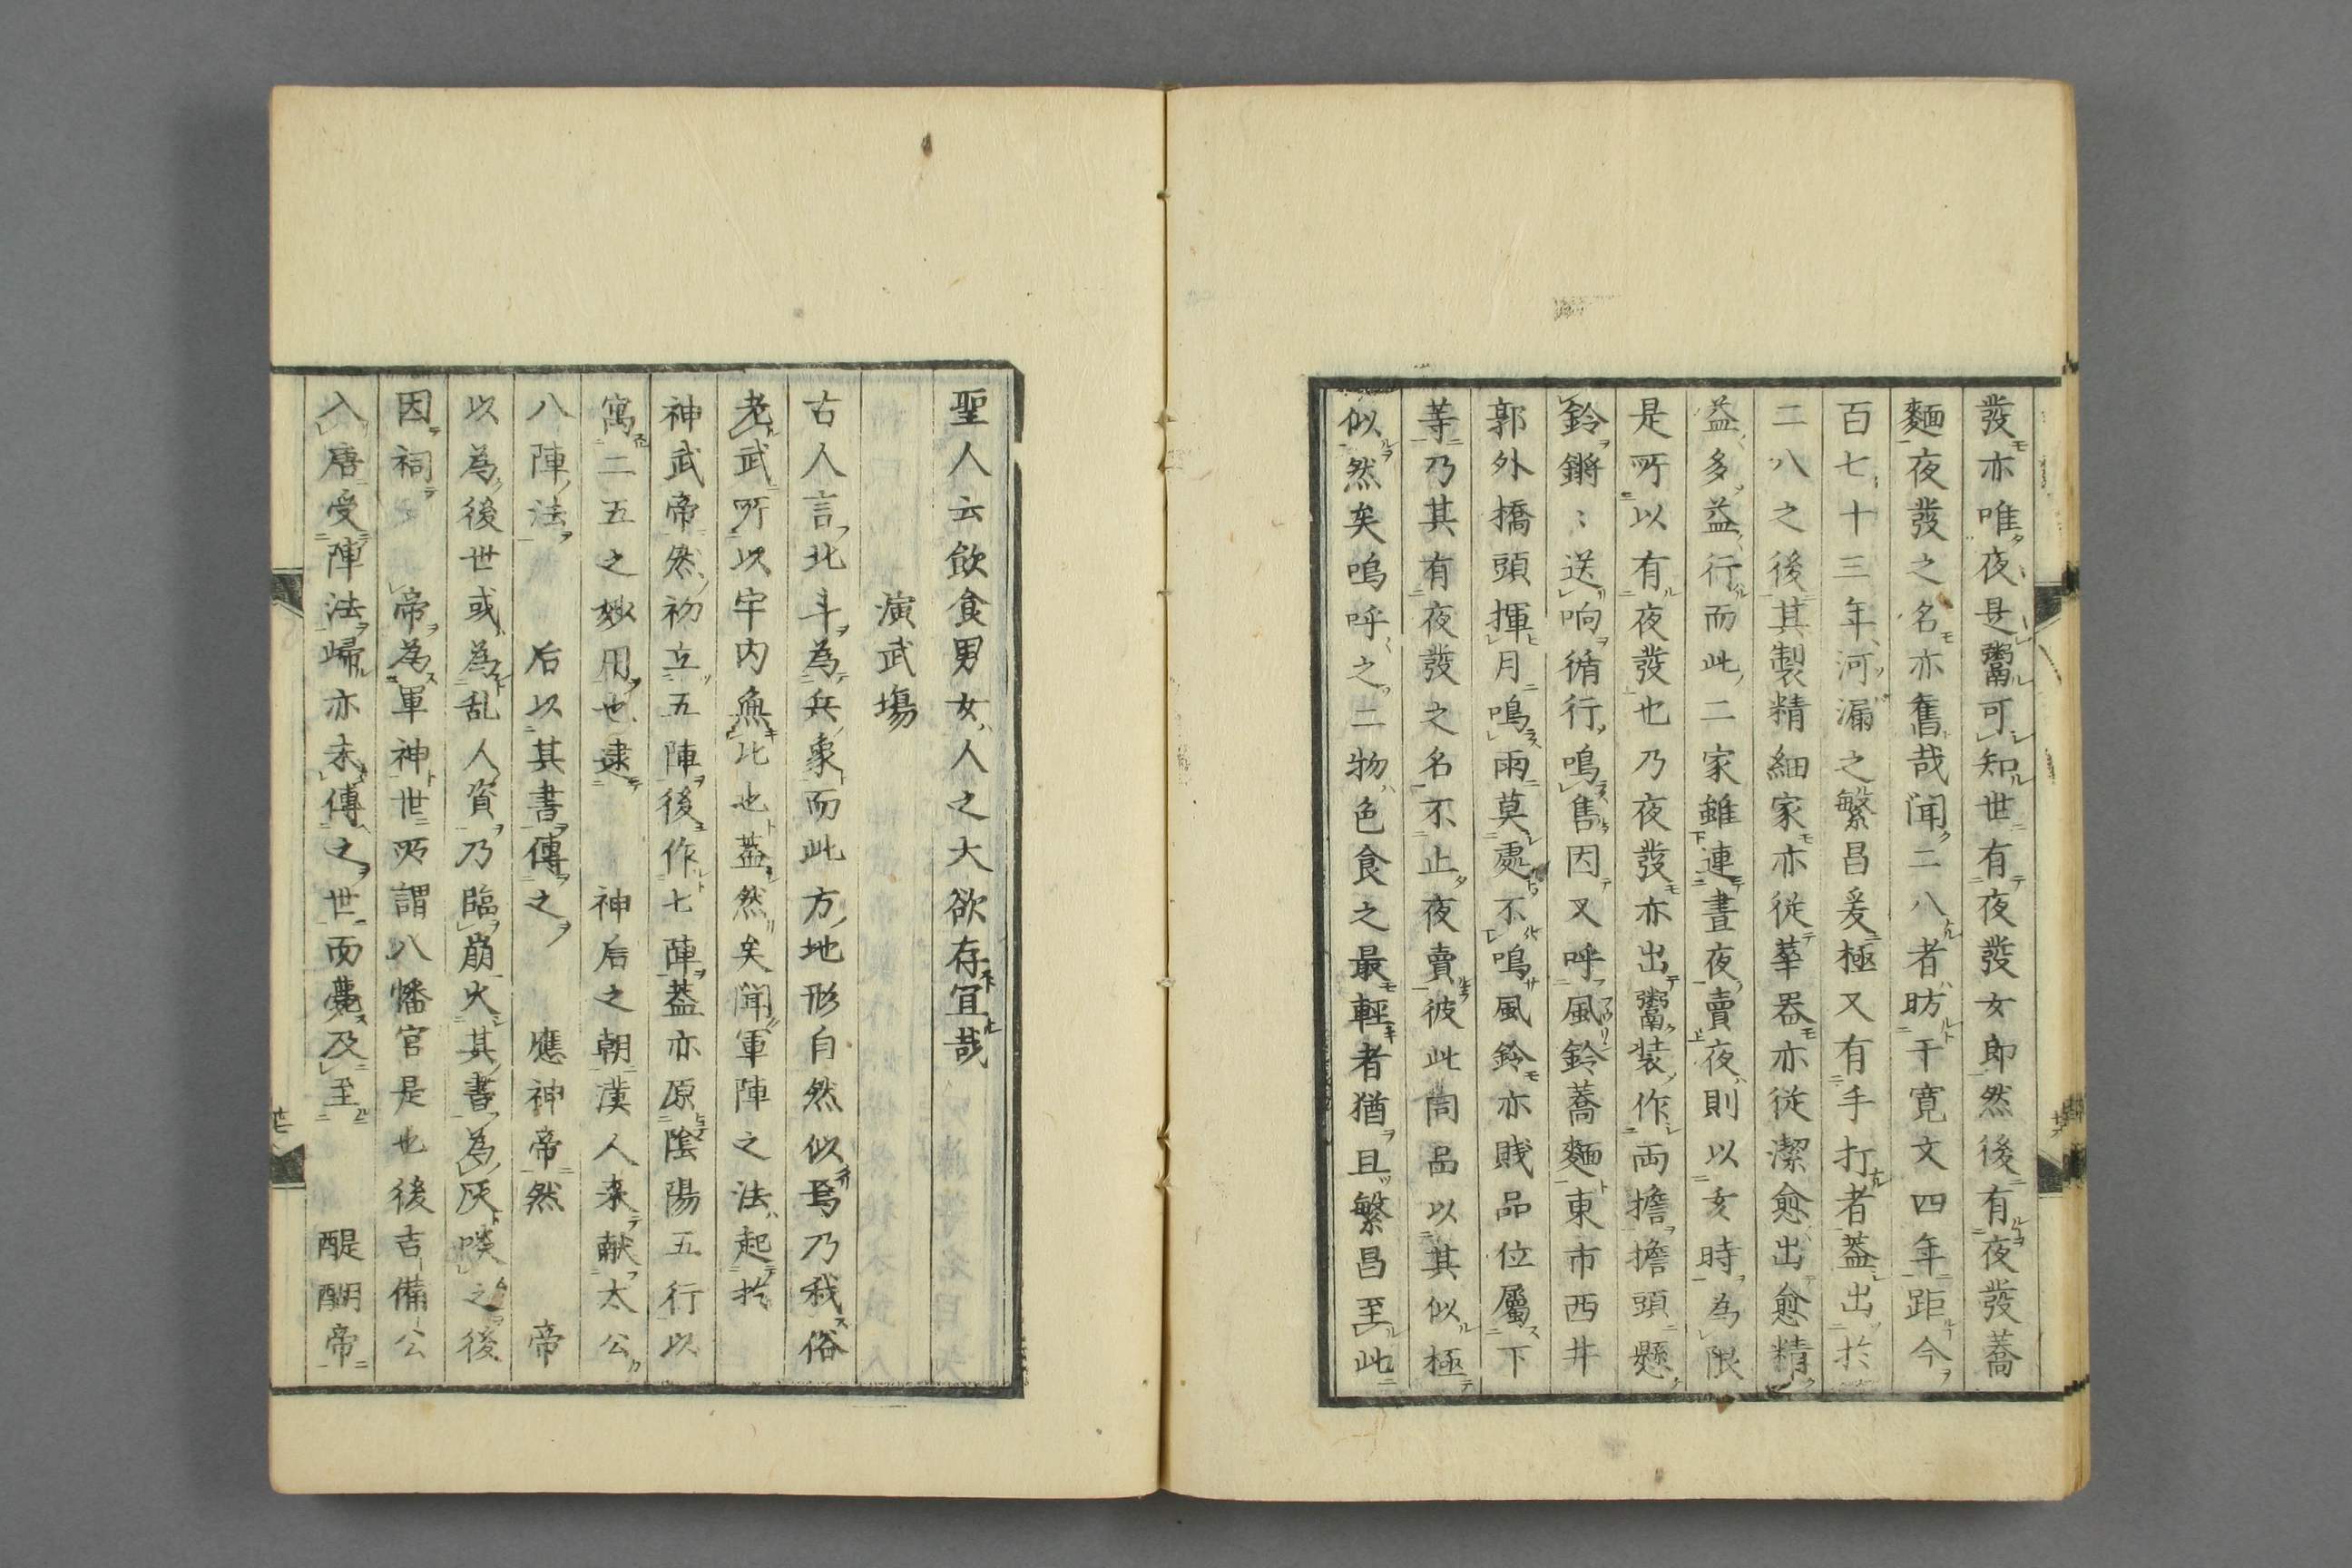 發亦唯夜是鬻可知世有夜發女郎然後有夜發蕎
麵夜發之名亦舊哉聞二八者昉干寛文四年距今
百七十三年河漏之繁昌爰極又有手打者蓋出於
二八之後其製精細家亦從華器亦從潔愈出愈精
益多益行而此二家雖連晝夜賣夜則以亥時為限
是所以有夜發也乃夜發亦出鬻裝作両擔擔頭懸
鈴鏘〻送响循行鳴售因又呼風鈴蕎麵東市西井
郭外橋頭揮月鳴雨莫處不鳴風鈴亦賎品位屬下
等乃其有夜發之名不止夜賣彼此同品以其似極
似然矣嗚呼之二物色食之最輕者猶且繁昌至此
聖人云飲食男女人之大欲存宜哉
演武場
古人言北斗為兵象而此方地形自然似焉乃我俗
老武所以宇内無比也蓋然矣聞軍陣之法起於
神武帝然初立五陣後作七陣蓋亦原陰陽五行以
寓二五之妙用也逮　神后之朝漢人来献太公
八陣法　后以其書傳之　應神帝然　帝
以為後世或為乱人資乃臨崩火其書為灰啖之後
因祠　帝為軍神世所謂八幡宮是也後吉備公
入唐受陣法歸亦未傳之世而薨及至　醍醐帝